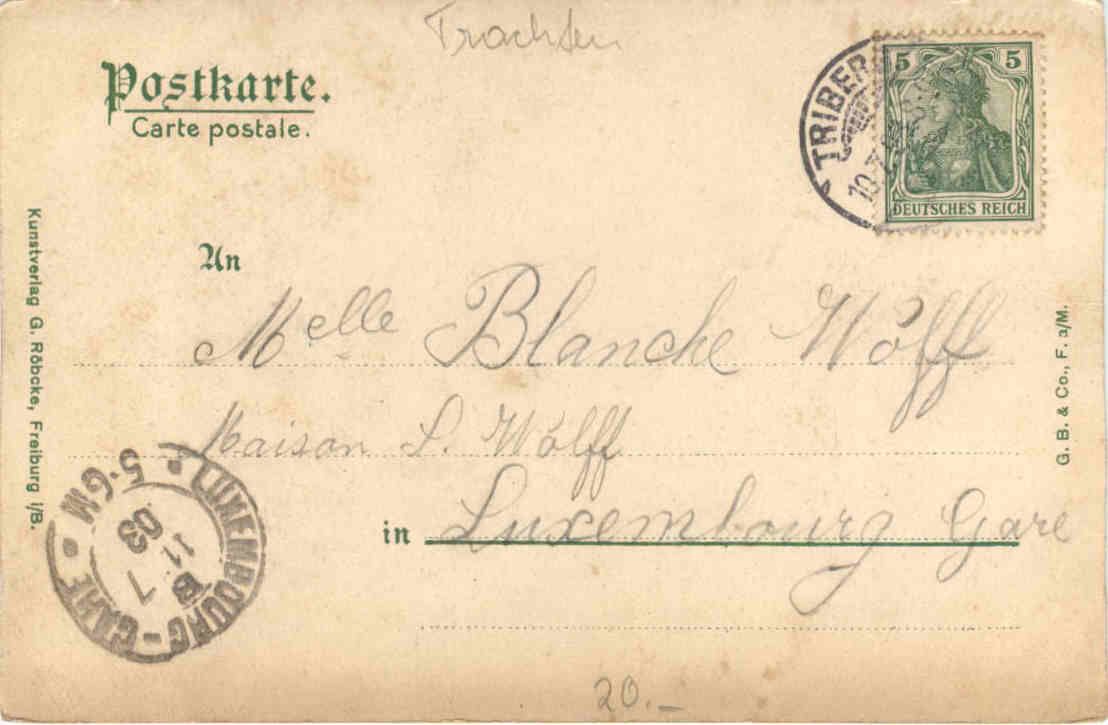 Trachten
Postkarte.
Carte postale.
TRIBERG
10.7.
5 5
DEUTSCHES REICH
An
Melle Blanche Wolff
Maison S. Wolff
in Luxembourg Gare
Kunstverlag G. Röbcke, Freiburg i/B.
G. B. & Co., F. a/M.
LUXEMBOURG-GARE
B
11 7
03
5-6M
20.-